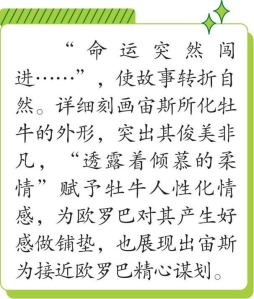 “命运突然闯
进……”，使故事转折自
然。详细刻画宙斯所化牡
牛的外形，突出其俊美非
凡，“透露着倾慕的柔
情”赋予牡牛人性化情
感，为欧罗巴对其产生好
感做铺垫，也展现出宙斯
为接近欧罗巴精心谋划。